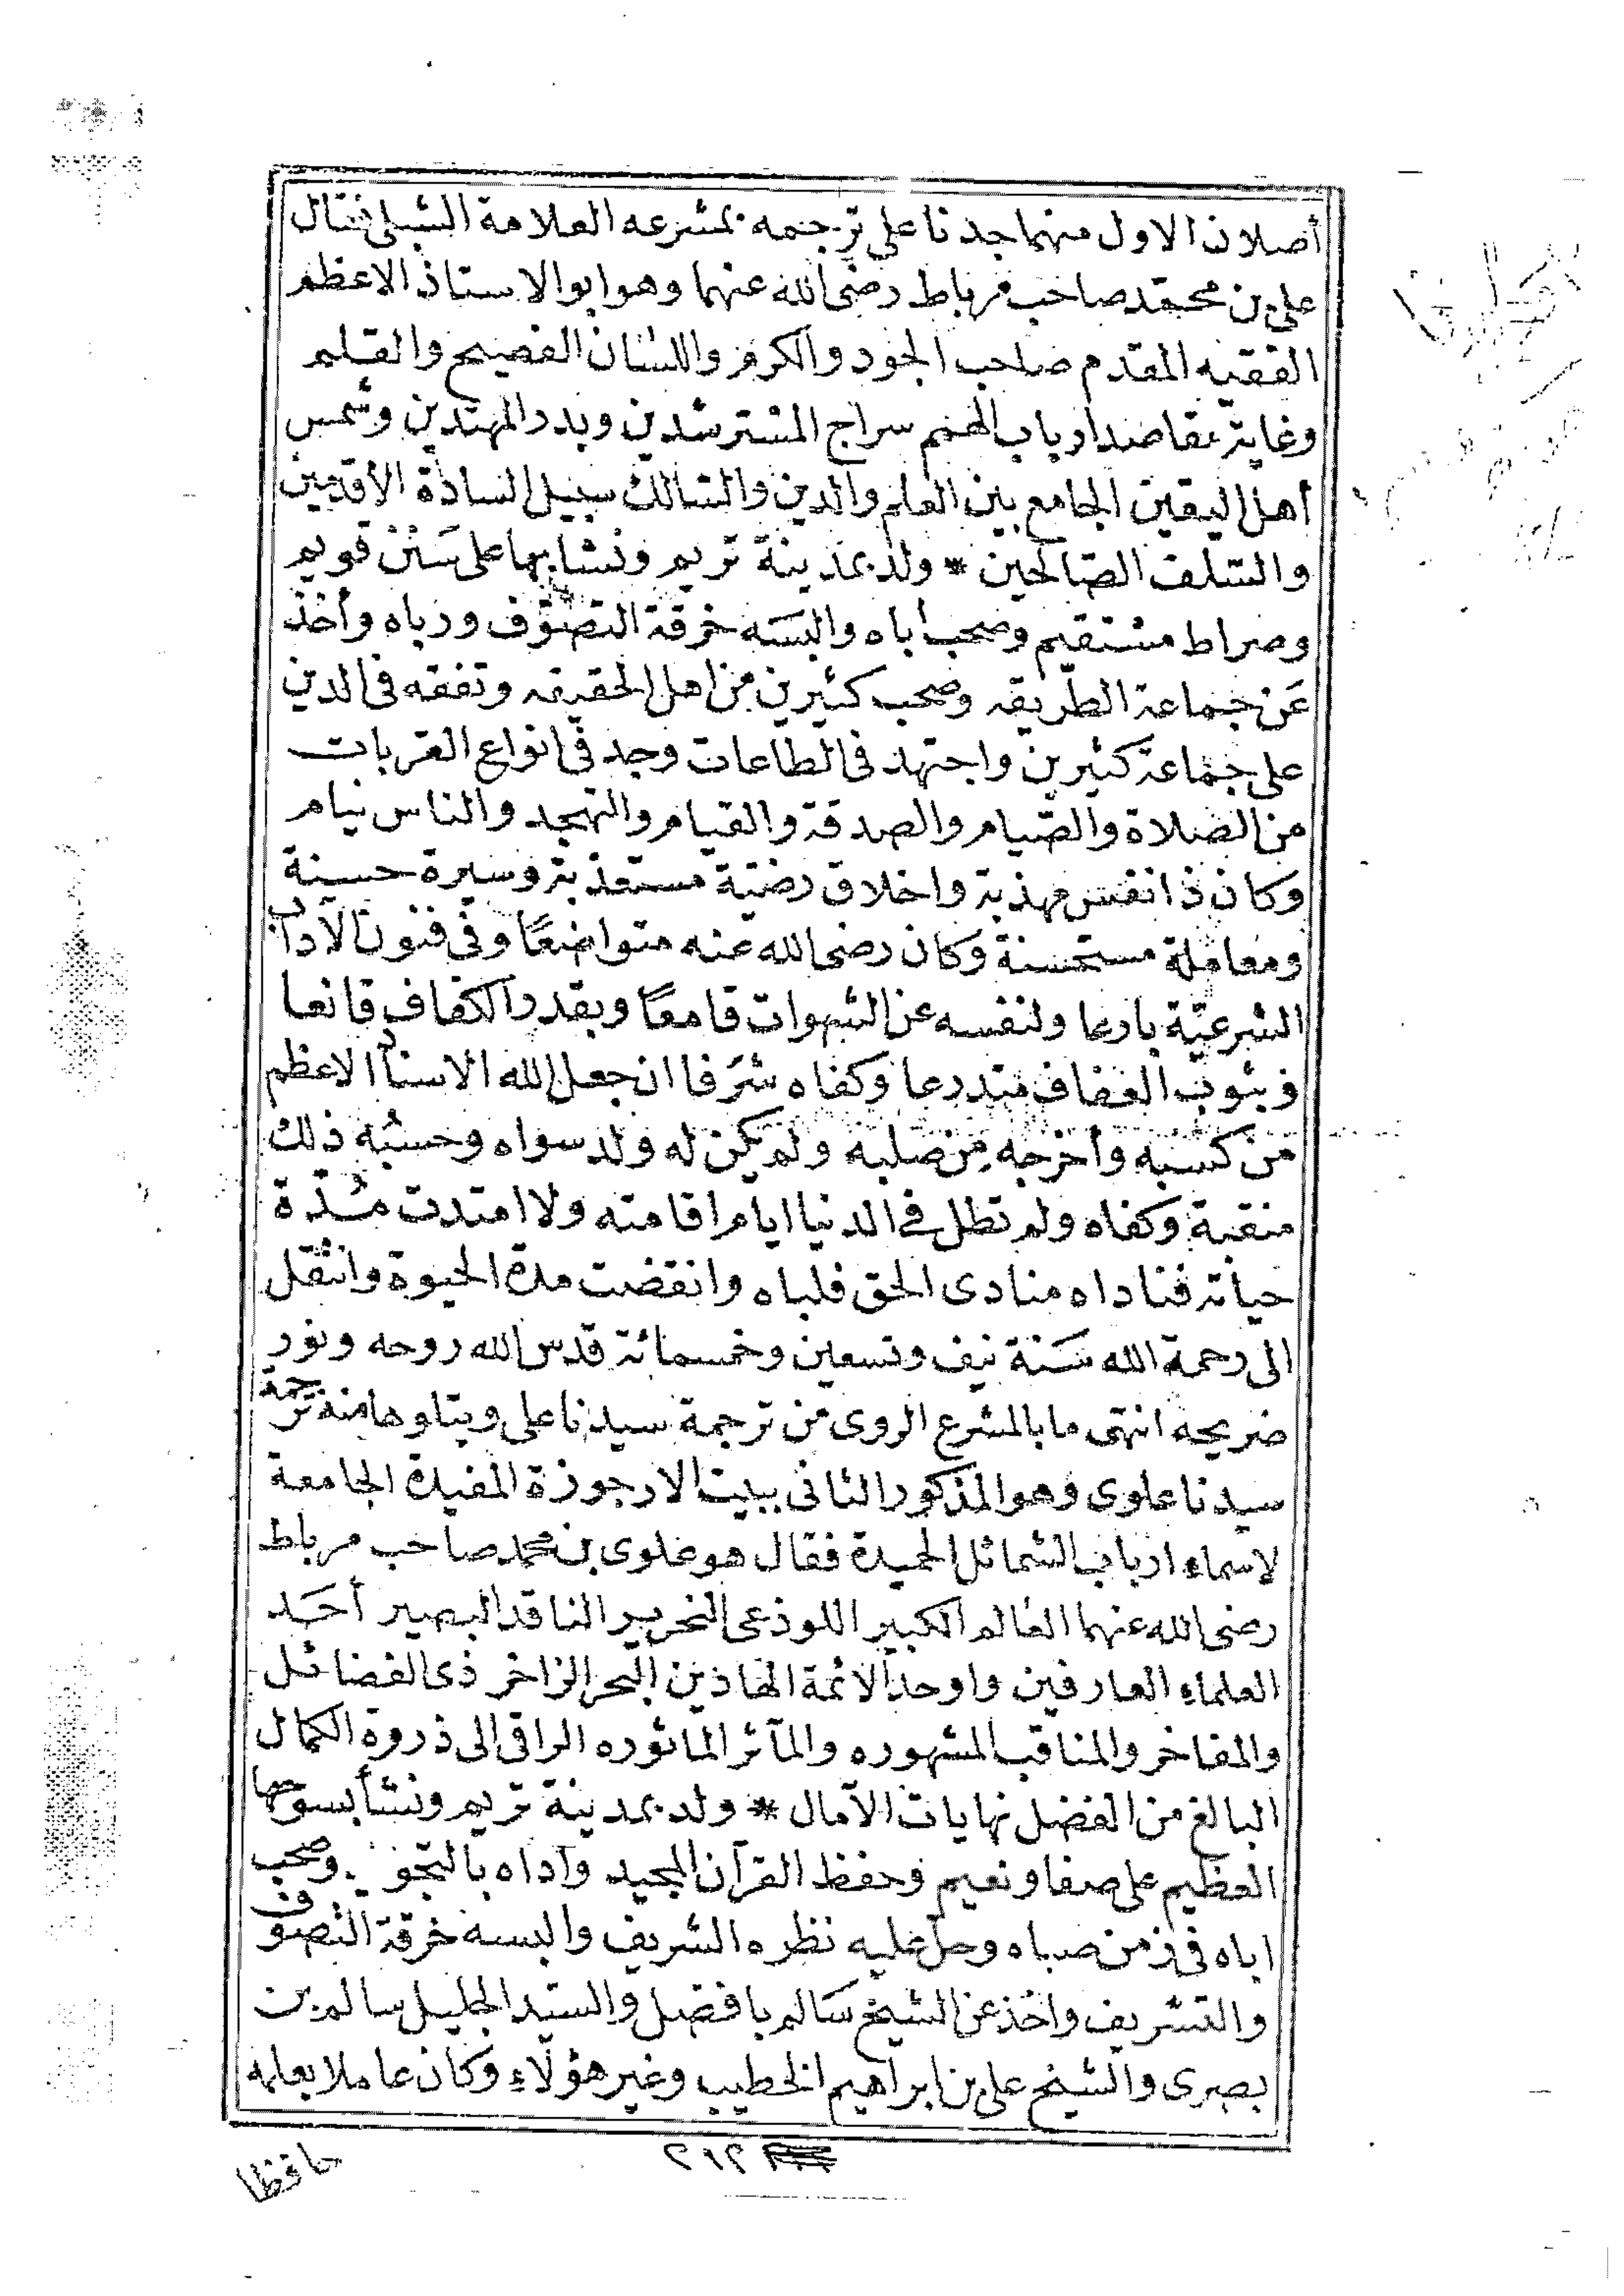 أصلان الاول منهما جدنا على ترجمه بمشرعه العلامة الشبلى فقال
على بن محمد صاحب مرباط رضى الله عنهما وهو ابو الاستاذ الاعظم
الفقيه المقدم صاحب الجود والكرم واللسان الفصيح والقلم
وغاية مقاصد ارباب الهمم سراج المسترشدين وبدر المهتدين وشمس
أهل اليقين الجامع بين العلم والدين والسالك سبيل السادة الأقدمين
والسلف الصالحين * ولد بمدينة تريم ونشأ بها على سَنن قويم
وصراط مستقيم وصحب أباه والبسَه خرقة التصوّف ورباه وأخذ
عَن جماعة الطريقه وصحب كثيرين من اهل الحقيقه وتفقه فى الدين
على جماعة كثيرين واجتهد فى الطاعات وجد فى انواع القربات
من الصلاة والصّيام والصدقة والقيام والتهجد والناس نيام
وكان ذا نفس مهذبة واخلاق رضيّة مستعذبة وسيرة حسينة
ومعاملة مستحسنة وكان رضى الله عنه متواضعًا وفى فنون الآداب
الشرعيّة بارعا ولنفسه عن الشهوات قامعًا وبقدر الكفاف قانعا
وبثوب العفاف متدرعا وكفاه شَرَفا ان جعل الله الاستاذ الاعظم
من كسبه وأخرجه مِن صلبه ولم يكن له ولد سواه وحسبُه ذلك
منقبة وكفاه ولم تطل فى الدنيا ايام اقامته ولا امتدت مُدّة
حياته فناداه منادى الحق فلباه وانقضت مدة الحيوة وانتقل
الى رحمة الله سَنة نيف وتسعين وخمسمائة قدس الله روحه ونور
ضريحه انتهى ما بالمشرع الروى من ترجمة سيدنا على ويتلوها منه ترجمة
سيدنا علوى وهو المذكور الثانى ببيت الارجوزة المفيدة الجامعة
لاسماء ارباب الشمائل الحميدة فقال هو علوى بن محمد صاحب مرباط
رضى الله عنهما العالم الكبير اللوذعى النحرير الناقد البصير أحَد
العلماء العارفين واوحد الائمة الهادين البحر الزاخر ذى الفضائل
والمفاخر والمناقب المشهوره والمآثر المأثوره الراقى الى ذروة الكمال
البالغ من الفضل نهايات الآمال * ولد بمدينة تريم ونشأ بسوحها
العظيم على صفا ونعيم وحفظ القرآن المجيد وأداه بالتجو وصحب
اباه فى زمن صباه وحل عليه نظره الشريف والبسه خرقة التصوف
والتشريف واخذ عن الشيخ سَالم بافضل والسيّد الجليل سالم بن
بصرى والشيخ على بن ابراهيم الخطيب وغير هؤلاء وكان عاملا بعلمه
٢١٢
حافظا